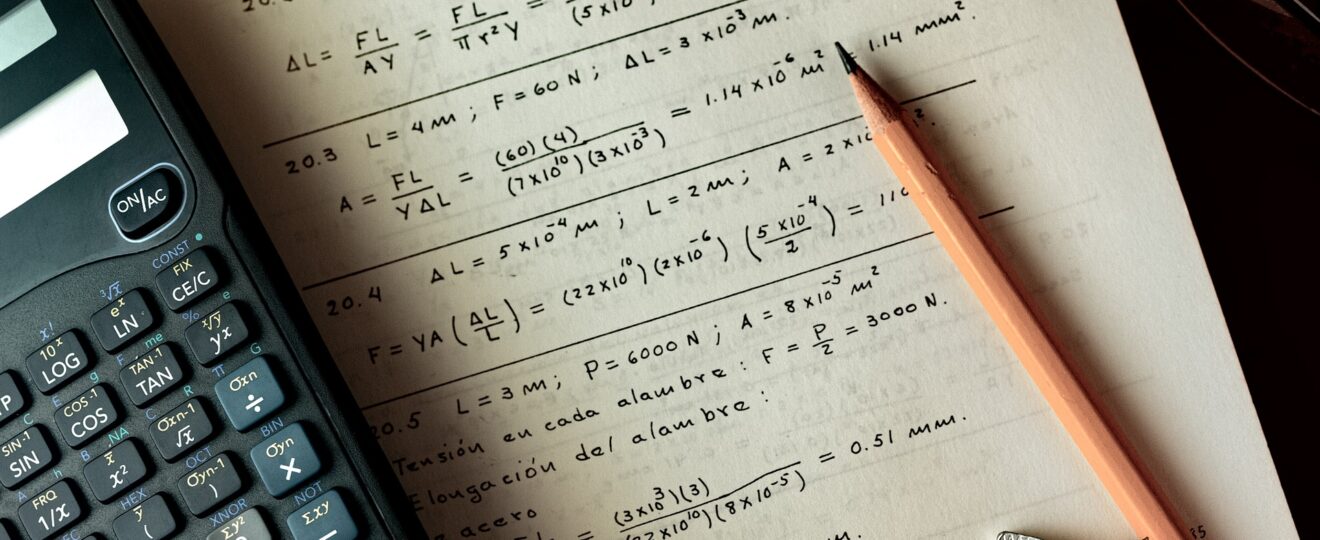 ΔL = FL/AY = FL/πr²Y =
20.3 L = 4 m ; F = 60 N ; ΔL = 3 x10⁻³ m.
A = FL/YΔL = (60)(4)/(7x10¹⁰)(3x10⁻³) = 1.14 x 10⁻⁶ m² = 1.14 mm².
20.4 ΔL = 5 x10⁻⁴ m ; L = 2 m ; A = 2 x
F = YA (ΔL/L) = (22x10¹⁰)(2x10⁻⁶) (5 x10⁻⁴/2) =
20.5 L = 3 m ; P = 6000 N ; A = 8 x 10⁻⁵ m²
Tensión en cada alambre : F = P/2 = 3000 N.
Elongación del alambre :
acero
= (3x10³)(3)/(22x10¹⁰)(8 x 10⁻⁵) = 0.51 mm.
ON/AC
CONST
FIX
CE/C
³√x
eˣ
LN
e
x!
10ˣ
LOG
%
ˣ√y
yˣ
me
TAN⁻¹
TAN
G
σxn
÷
COS⁻¹
COS
π
R
σxn-1
√x
SIN⁻¹
SIN
NA
x̄
x²
BIN
σyn
×
OCT
σyn-1
)
FRQ
1/x
HEX
ȳ
(
XNOR
Σy²
NOT
Σxy